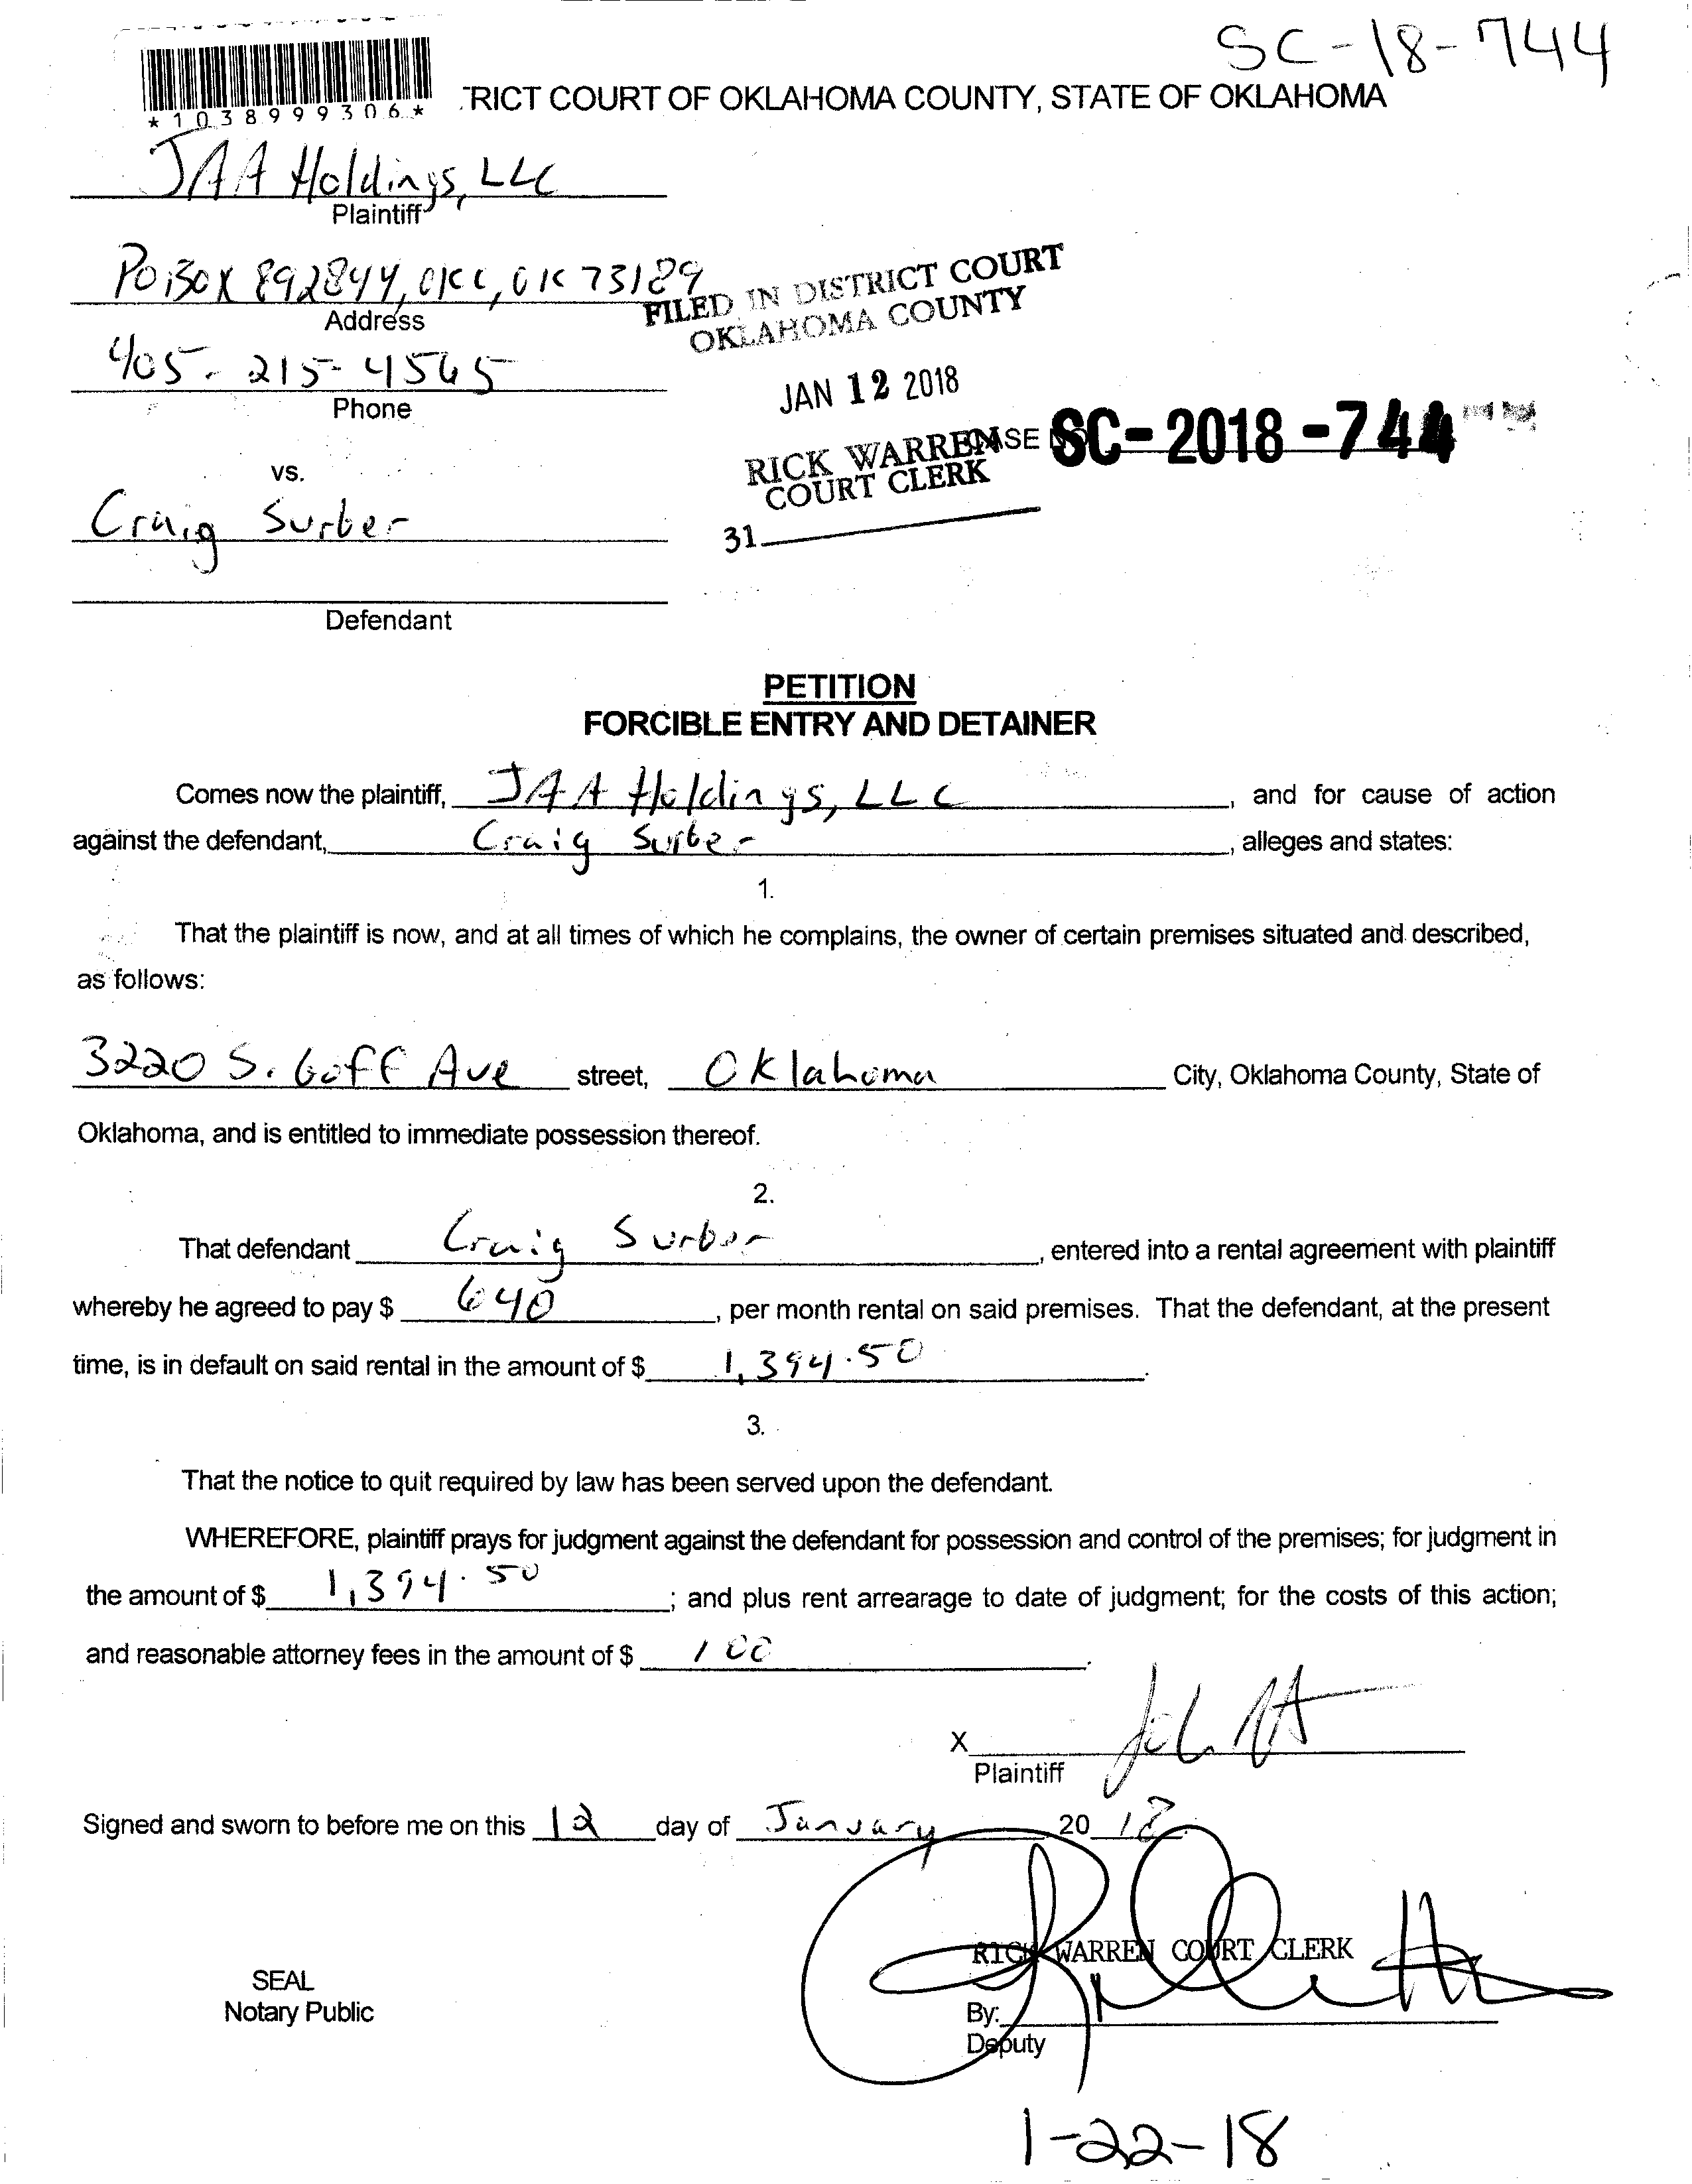 SC-18-744
*1038999306*
TRICT COURT OF OKLAHOMA COUNTY, STATE OF OKLAHOMA
JAA Holdings, LLC
Plaintiff
PO Box 892844, OKC, OK 73189
Address
FILED IN DISTRICT COURT
OKLAHOMA COUNTY
405-215-4565
Phone
JAN 12 2018
RICK WARREN
COURT CLERK
SC-2018-744
31
vs.
Craig Surber
Defendant
PETITION
FORCIBLE ENTRY AND DETAINER
Comes now the plaintiff, JAA Holdings, LLC, and for cause of action
against the defendant, Craig Surber, alleges and states:
1.
That the plaintiff is now, and at all times of which he complains, the owner of certain premises situated and described,
as follows:
3220 S. Goff Ave street, Oklahoma City, Oklahoma County, State of
Oklahoma, and is entitled to immediate possession thereof.
2.
That defendant Craig Surber, entered into a rental agreement with plaintiff
whereby he agreed to pay $ 640, per month rental on said premises. That the defendant, at the present
time, is in default on said rental in the amount of $ 1,394.50.
3.
That the notice to quit required by law has been served upon the defendant.
WHEREFORE, plaintiff prays for judgment against the defendant for possession and control of the premises; for judgment in
the amount of $ 1,394.50; and plus rent arrearage to date of judgment; for the costs of this action;
and reasonable attorney fees in the amount of $ 100.
X
Plaintiff
Signed and sworn to before me on this 12 day of January 2018.
RICK WARREN COURT CLERK
SEAL
Notary Public
By:
Deputy
1-22-18